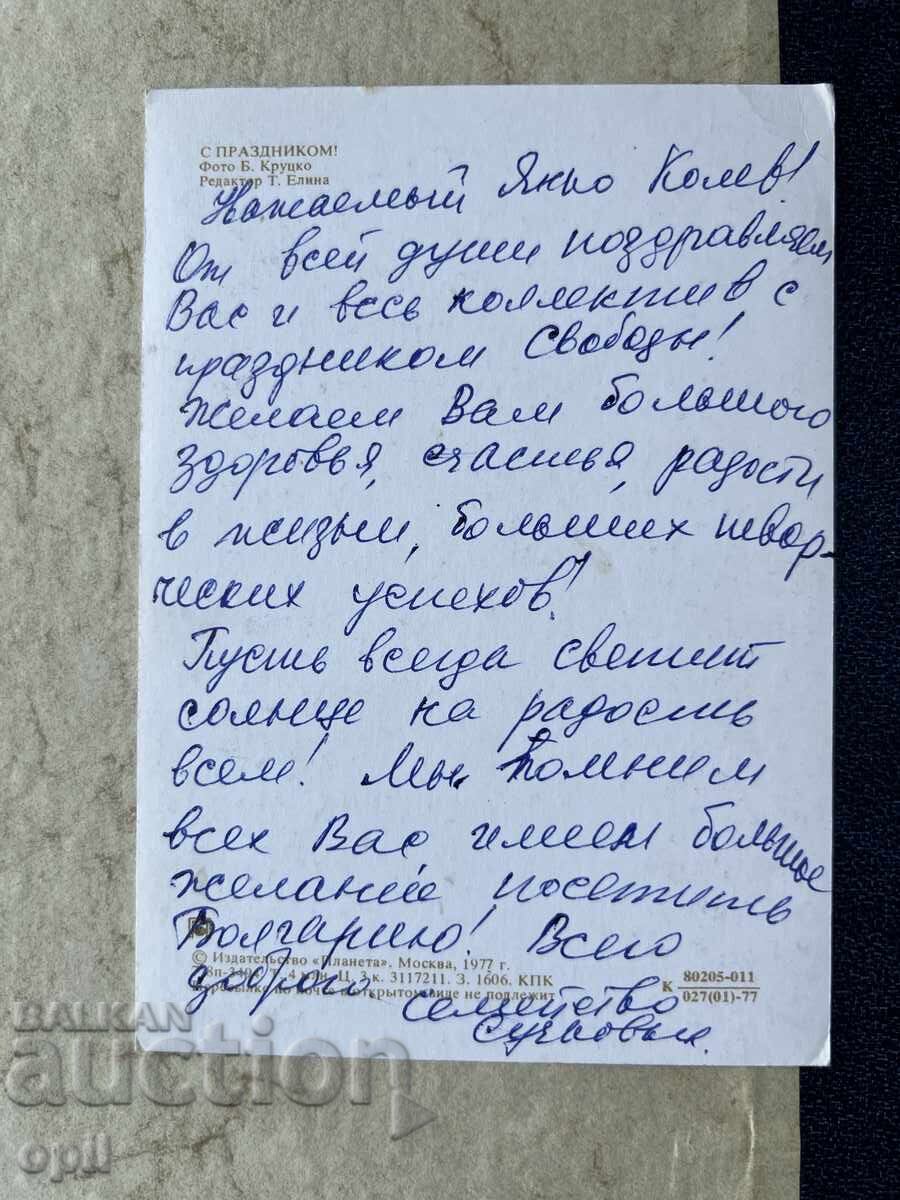 С ПРАЗДНИКОМ!
Фото Б. Круцко
Редактор Т. Елина
Янко Колев!
От всей души поздравляем
Вас и весь коллектив с
праздником Свободы!
Желаем Вам большого
здоровья, счастья, радости
в жизни, больших твор-
ческих успехов!
Пусть всегда светит
солнце на радость
всем! Мы помним
всех Вас имеем большое
желание посетить
Болгарию! Всего
© Издательство «Планета». Москва, 1977 г.
Т. 4 млн. Ц. 3 к. 3117211. З. 1606. КПК
по почте в открытом виде не подлежит
К 80205-011
027(01)-77
доброго. семейство
BALKAN
auction
opil